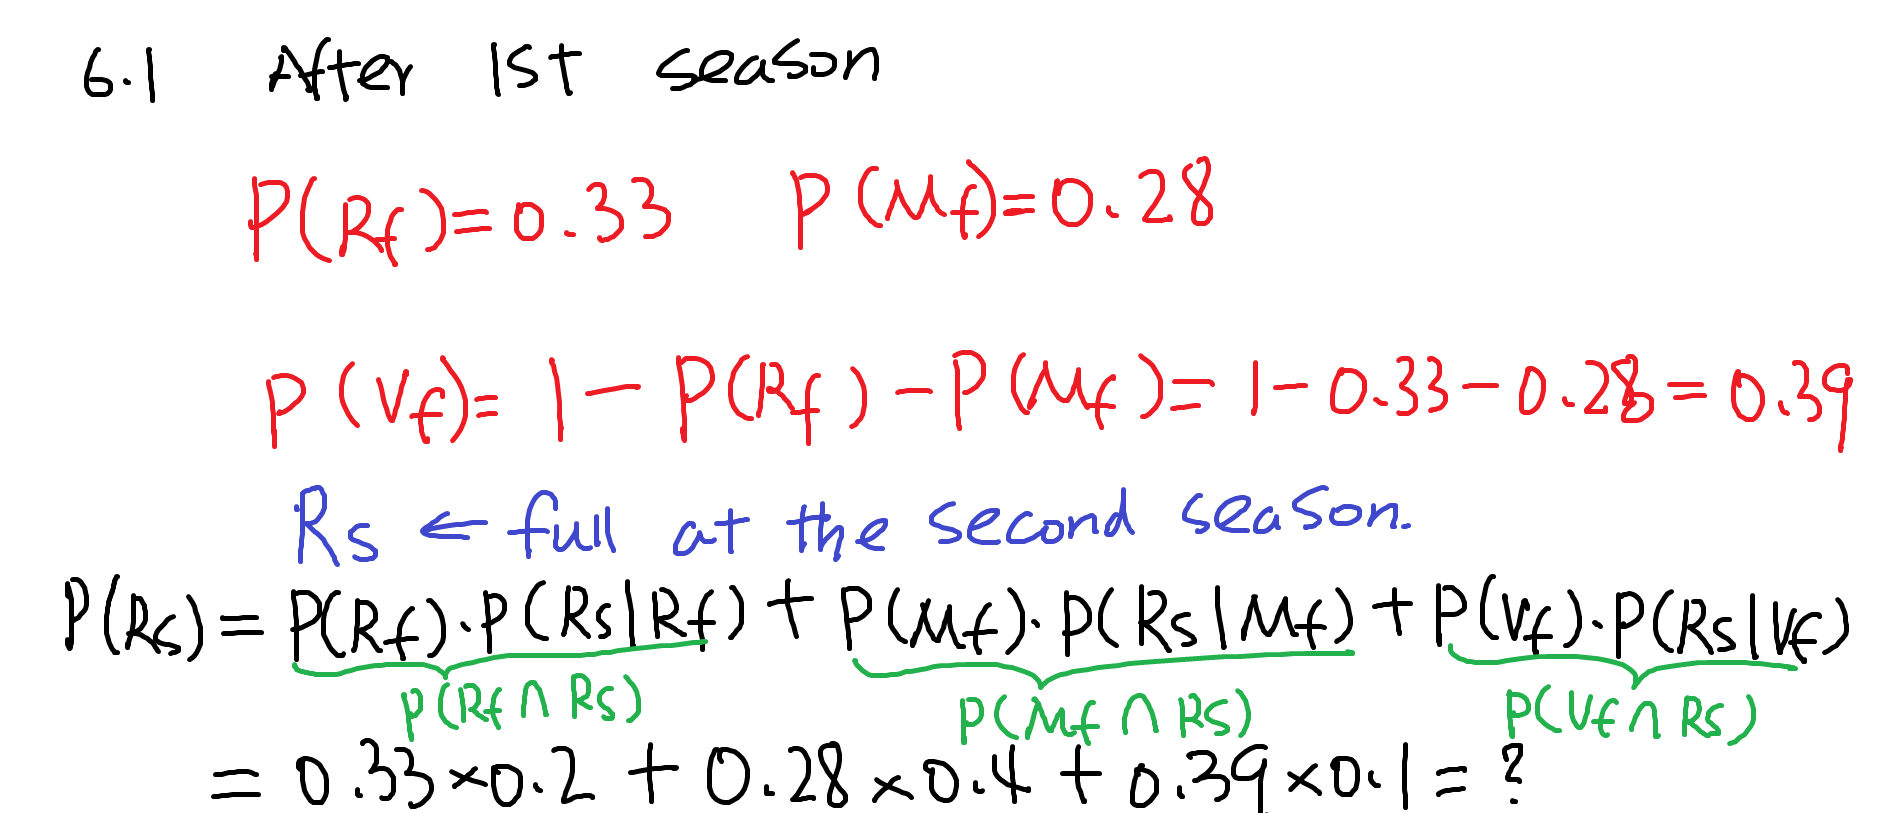 6.1 After 1st season
P(Rf)=0.33 P(Mf)=0.28
P(Vf)= 1 − P(Rf) − P(Mf)= 1 − 0.33 − 0.28 = 0.39
Rs ← full at the second season.
P(Rs) = P(Rf)·P(Rs|Rf) + P(Mf)·P(Rs|Mf) + P(Vf)·P(Rs|Vf)
P(Rf ∩ Rs) P(Mf ∩ Rs) P(Vf ∩ Rs)
= 0.33×0.2 + 0.28×0.4 + 0.39×0.1 = ?